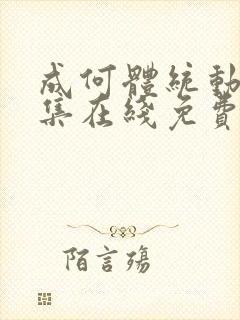 成何體統動
集在綫免費
陌言殤